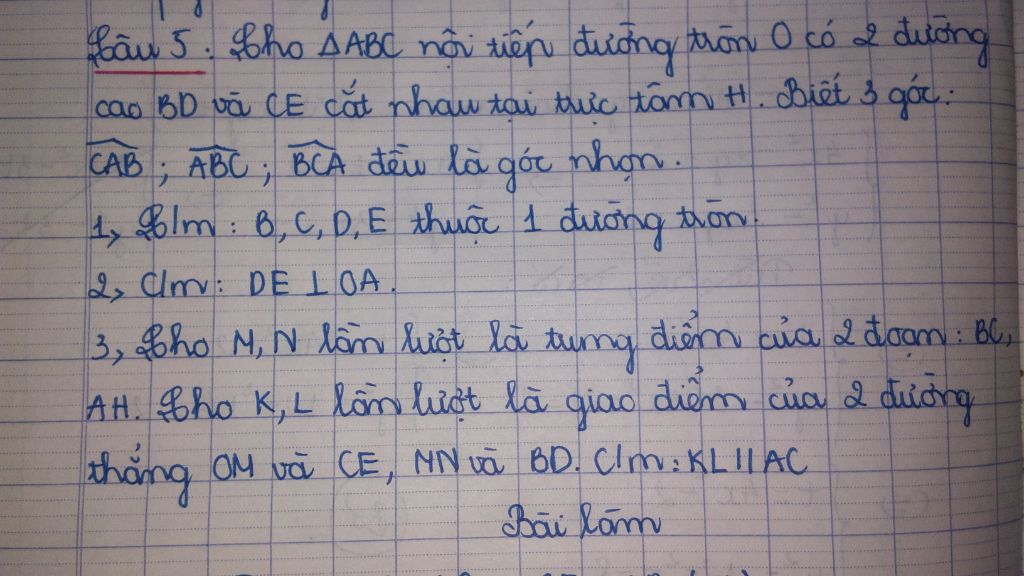 Câu 5: Cho ΔABC nội tiếp đường tròn O có 2 đường
cao BD và CE cắt nhau tại trực tâm H. Biết 3 góc:
CAB; ABC; BCA đều là góc nhọn.
1, C/m: B, C, D, E thuộc 1 đường tròn.
2, C/m: DE ⊥ OA.
3, Cho M, N lần lượt là trung điểm của 2 đoạn: BC,
AH. Cho K, L lần lượt là giao điểm của 2 đường
thẳng OM và CE, MN và BD. C/m: KL // AC
Bài làm